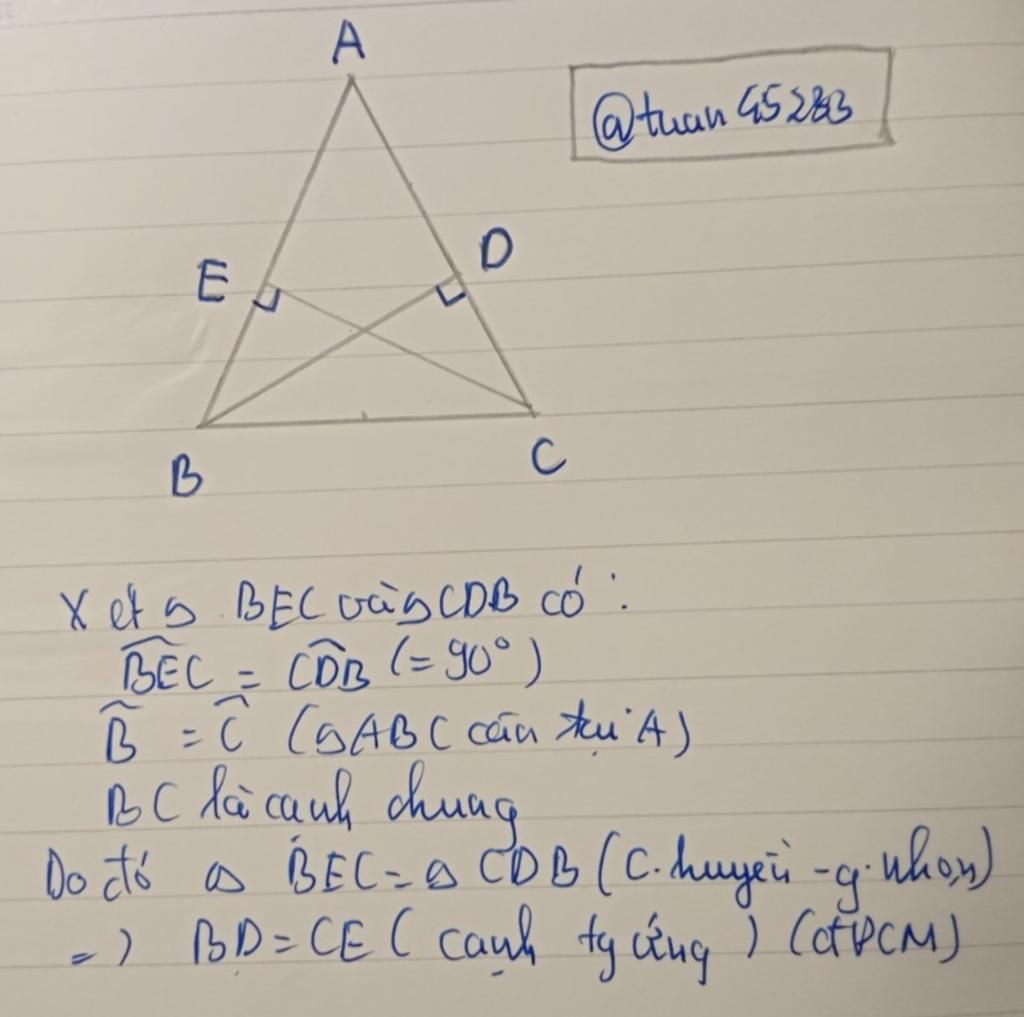 A
@tuan45283
D
E
B
C
Xét △ BEC và △ CDB có:
BEC = CDB (= 90°)
B̂ = Ĉ (△ABC cân tại A)
BC là cạnh chung
Do đó △ BEC = △ CDB (C.huyền - g.nhọn)
=> BD = CE (cạnh tg ứng) (đPCM)